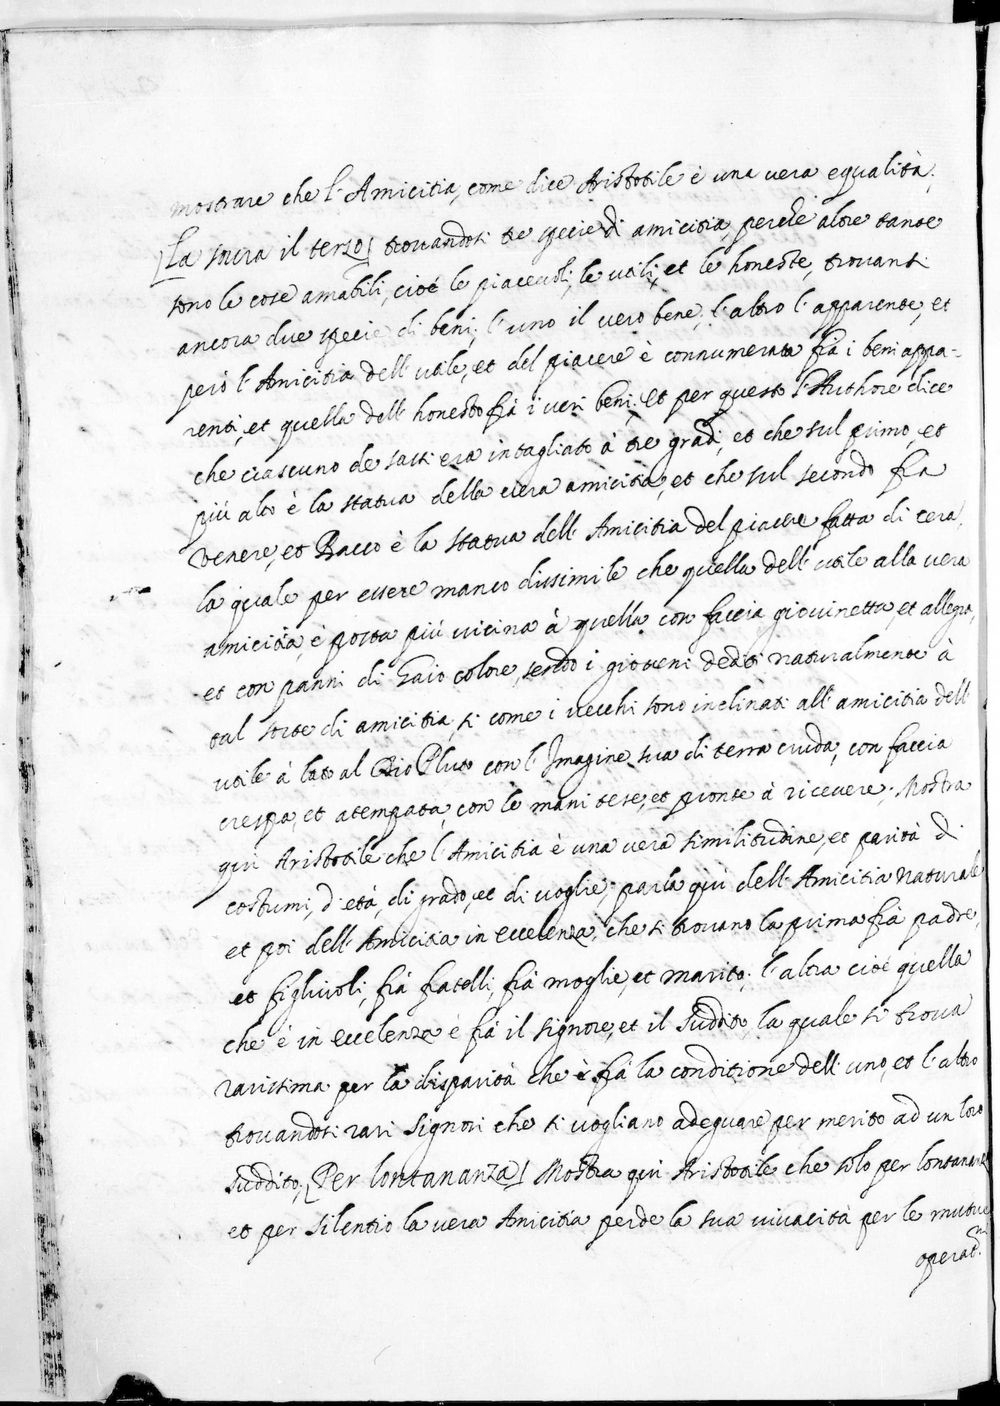 mostrare che l'Amicitia, come dice Aristotile è una vera equalità.
[La sovra il terzo] trovandosi tre specie di amicitia, perche altre tante
sono le cose amabili, cioè le piacevoli, le utili, et le honeste, trovansi
ancora due specie di beni, l'uno il vero bene, l'altro l'apparente, et
però l'Amicitia dell'utile, et del piacere è connumerata frà i beni appa-
renti, et quella dell'honesto frà i veri beni; et per questo l'Authore dice
che ciascuno de sassi era intagliato à tre gradi, et che sul primo, et
più alto è la statua della vera amicitia, et che sul secondo fra
Venere, et Bacco è la statua dell'Amicitia del piacere fatta di cera,
la quale per essere manco dissimile che quella dell'utile alla vera
amicitia, è posta più vicina à quella con faccia giovinetta, et allegra,
et con panni di Gaio colore, sendo i gioveni dediti naturalmente à
tal sorte di amicitia, si come i vecchi sono inclinati all'amicitia dell'
utile à lato al Dio Pluto con l'Imagine sua di terra cruda, con faccia
crespa, et atempata, con le mani tese, et pronte à ricevere; Mostra
qui Aristotile che l'Amicitia è una vera similitudine, et parità di
costumi, d'età, di grado, et di voglie; parla qui dell'Amicitia naturale
et poi dell'Amicitia in eccelenza, che si trovano la prima frà padre,
et figlivoli, frà fratelli, frà moglie, et marito; l'altra cioè quella
che è in eccelenza è frà il signore, et il suddito, la quale si trova
rarissima per la disparità che è frà la conditione dell'uno, et l'altro
trovandosi rari Signori che si vogliano adeguare per merito ad un loro
suddito, [Per lontananza] Mostra qui Aristotile che solo per lontananza
et per silentio la vera Amicitia perde la sua vivacità per le mutue
operat.ni